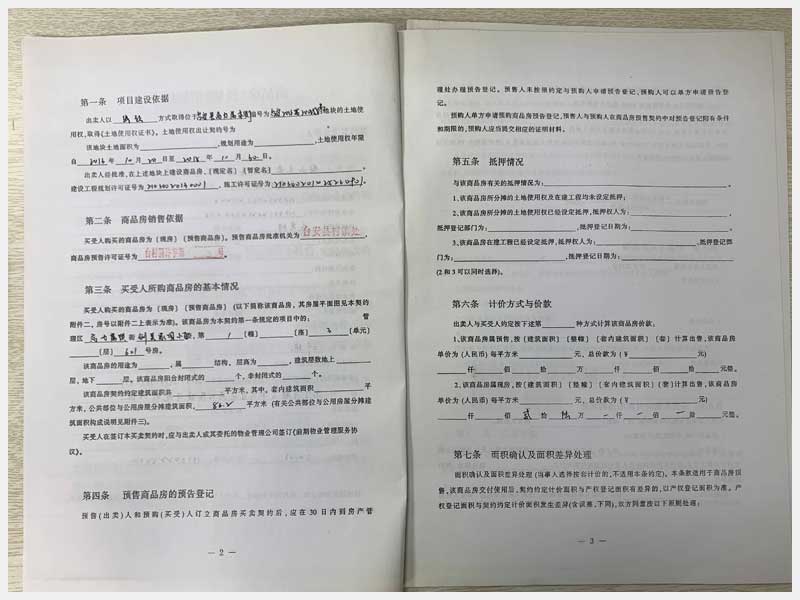 第一条 项目建设依据
出卖人以 方式取得位于 编号为 地块的土地使
用权,取得《土地使用权证书》。土地使用权出让契约号为
该地块土地面积为 ,规划用途为 ,土地使用权年限
自 年 10 月 20 日至 年 10 月 日。
出卖人经批准,在上述地块上建设商品房,〔现定名〕〔暂定名〕 。
建设工程规划许可证号为 ,施工许可证号为 。
第二条 商品房销售依据
买受人购买的商品房为〔现房〕〔预售商品房〕。预售商品房批准机关为 台安县村镇处 ,
商品房预售许可证号为 号 。
第三条 买受人所购商品房的基本情况
买受人购买的商品房为〔现房〕〔预售商品房〕(以下简称该商品房,其房屋平面图见本契约
附件二,房号以附件二上表示为准)。该商品房为本契约第一条规定的项目中的: 管
理区 第 1 〔幢〕 〔座〕 2 〔单元〕
〔层〕 601 号房。
该商品房的用途为 ,属 结构,层高为 ,建筑层数地上
层,地下 层。该商品房阳台封闭式的 个,非封闭式的 个。
该商品房契约约定建筑面积共 平方米,其中,套内建筑面积 平
方米,公共部位与公用房屋分摊建筑面积 平方米(有关公共部位与公用房屋分摊建
筑面积构成说明见附件三)。
买受人在签订本买卖契约时,应与出卖人或其委托的物业管理公司签订《前期物业管理服务协
议》。
第四条 预售商品房的预告登记
预售(出卖)人和预购(买受)人订立商品房买卖契约后,应在30日内到房产管
— 2 —
理处办理预告登记。预售人未按照约定与预购人申请预告登记,预购人可以单方申请预告登
记。
预购人单方申请预购商品房预告登记,预售人与预购人在商品房预售契约中对预告登记附有条件
和期限的,预购人应当提交相应的证明材料。
第五条 抵押情况
与该商品房有关的抵押情况为: 。
1、该商品房所分摊的土地使用权及在建工程均未设定抵押;
2、该商品房所分摊的土地使用权已经设定抵押,抵押权人为: ,
抵押登记部门为: ,抵押登记日期为: 。
3、该商品房在建工程已经设定抵押,抵押权人为: ,抵押登记部
门为: ,抵押登记日期为: 。
(2和3可以同时选择)。
第六条 计价方式与价款
出卖人与买受人约定按下述第 种方式计算该商品房价款:
1、该商品房属预售,按〔建筑面积〕〔整幢〕〔套内建筑面积〕〔套〕计算出售,该商品房
单价为(人民币)每平方米 元,总价款为(¥ 元)
仟 佰 拾 万 仟 佰 拾 元整。
2、该商品房属现房,按〔建筑面积〕〔整幢〕〔套内建筑面积〕〔套〕计算出售,该商品房
单价为(人民币)每平方米 元,总价款为(¥ 元)
仟 佰 贰 拾 陆 万 仟 佰 拾 元整。
第七条 面积确认及面积差异处理
面积确认及面积差异处理(当事人选择按套计价的,不适用本条约定)。本条款适用于商品房预
售,该商品房交付使用后,契约约定计价面积与产权登记面积有差异的,以产权登记面积为准。产
权登记面积与契约约定计价面积发生差异(含误差,下同),双方同意按以下原则处理:
— 3 —